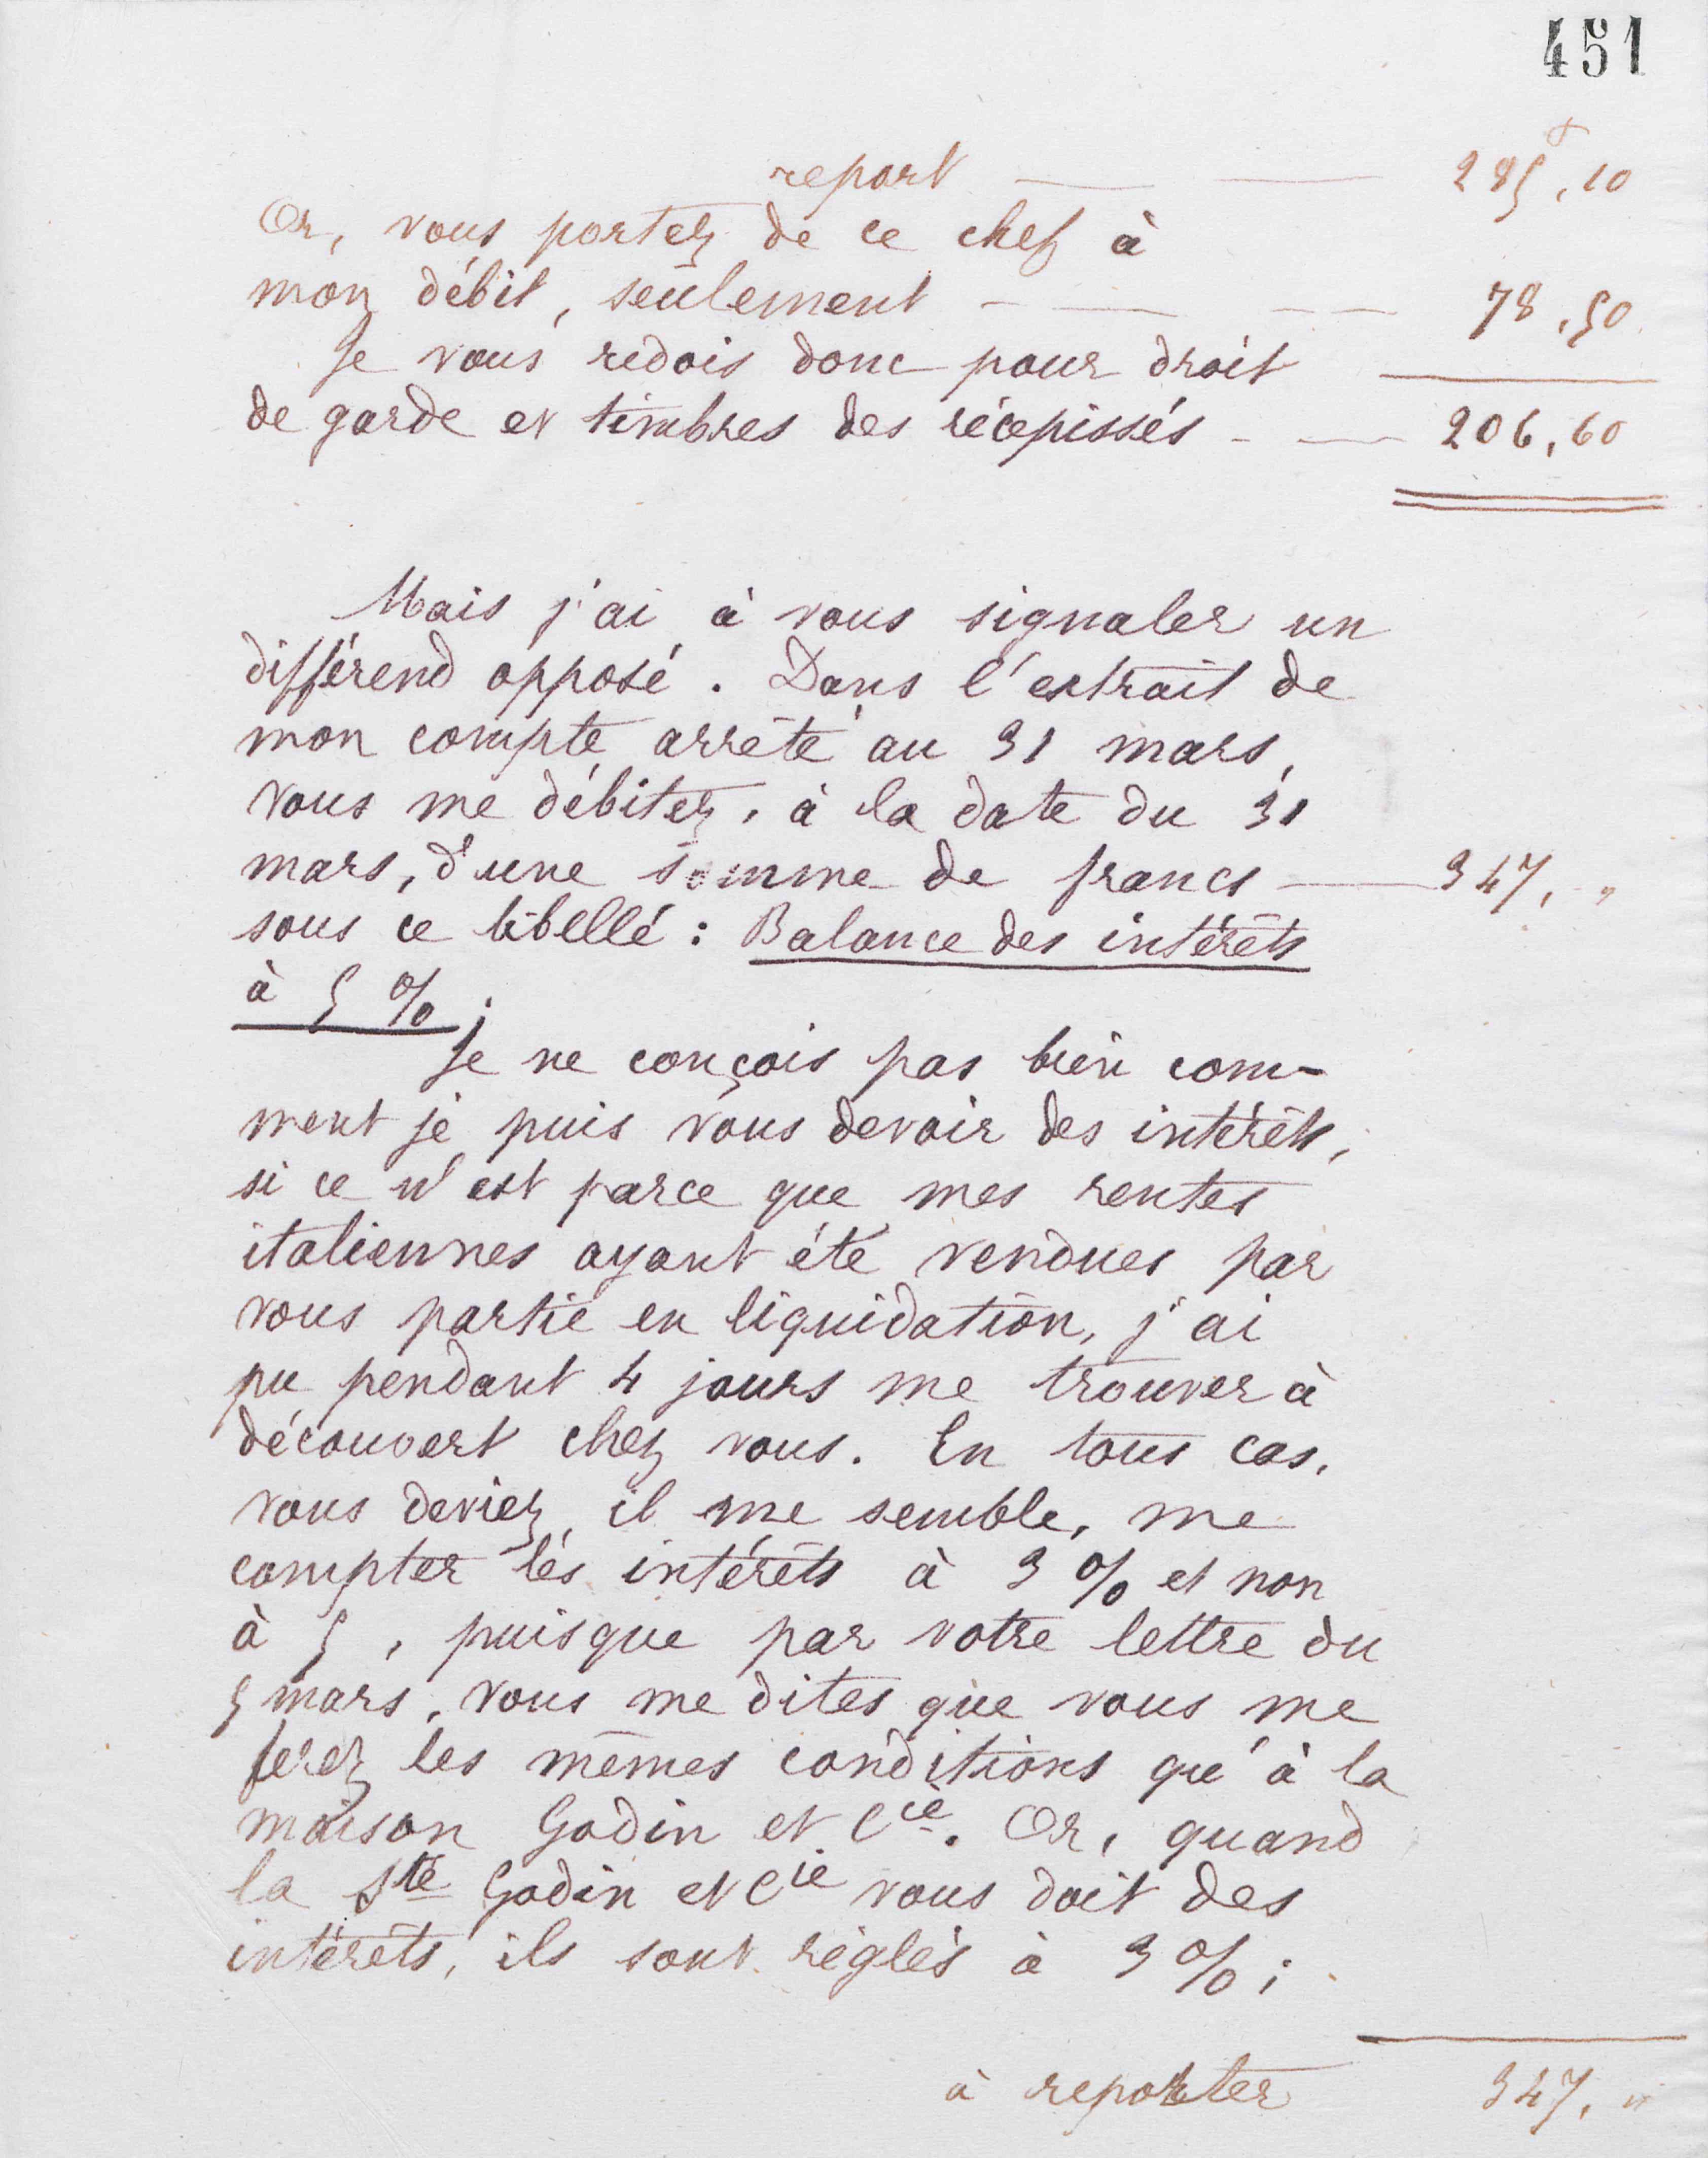 451
report — — 285f,10
Or, vous portez de ce chef à
mon débit, seulement - — - - 78,50
Je vous redois donc pour droit
de garde et timbres des récépissés - — 206,60
Mais j'ai à vous signaler un
différend opposé. Dans l'extrait de
mon compte arrêté au 31 mars,
vous me débitez, à la date du 31
mars, d'une somme de francs — 347, "
sous ce libellé : Balance des intérêts
à 5 %.
Je ne conçois pas bien com-
ment je puis vous devoir des intérêts,
si ce n'est parce que mes rentes
italiennes ayant été vendues par
vous partie en liquidation, j'ai
pu pendant 4 jours me trouver à
découvert chez vous. En tous cas,
vous deviez, il me semble, me
compter les intérêts à 3 % et non
à 5, puisque par votre lettre du
5 mars, vous me dites que vous me
ferez les mêmes conditions qu'à la
maison Godin et Cie. Or, quand
la Sté Godin et Cie vous doit des
intérêts, ils sont réglés à 3 % ;
à reporter 347, "